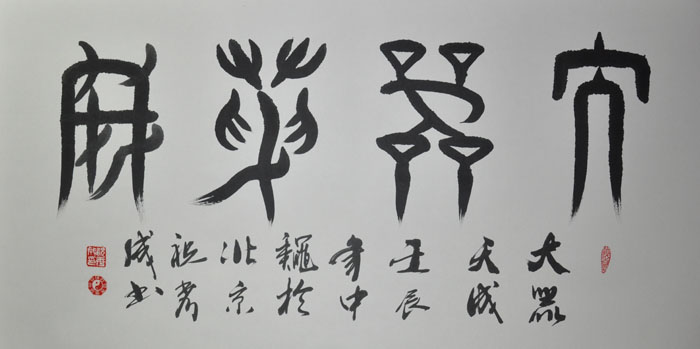 大器天成
大器
天成
壬辰
年中
龝於
北京
祝
成书